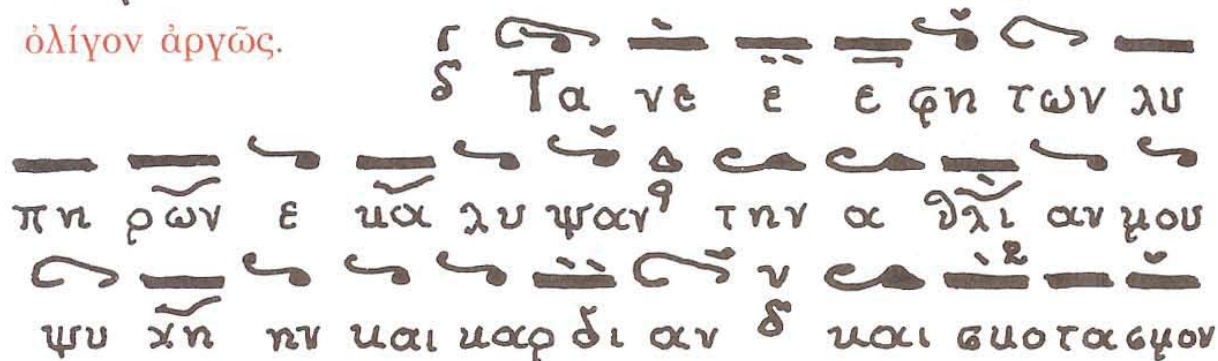 ὀλίγον ἀργῶς.
δ Τα νε ε ε φη των λυ
πη ρων ε κα λυ ψαν την α θλι αν μου
ψυ χη ην και καρ δι αν δ και σκο τα σμον